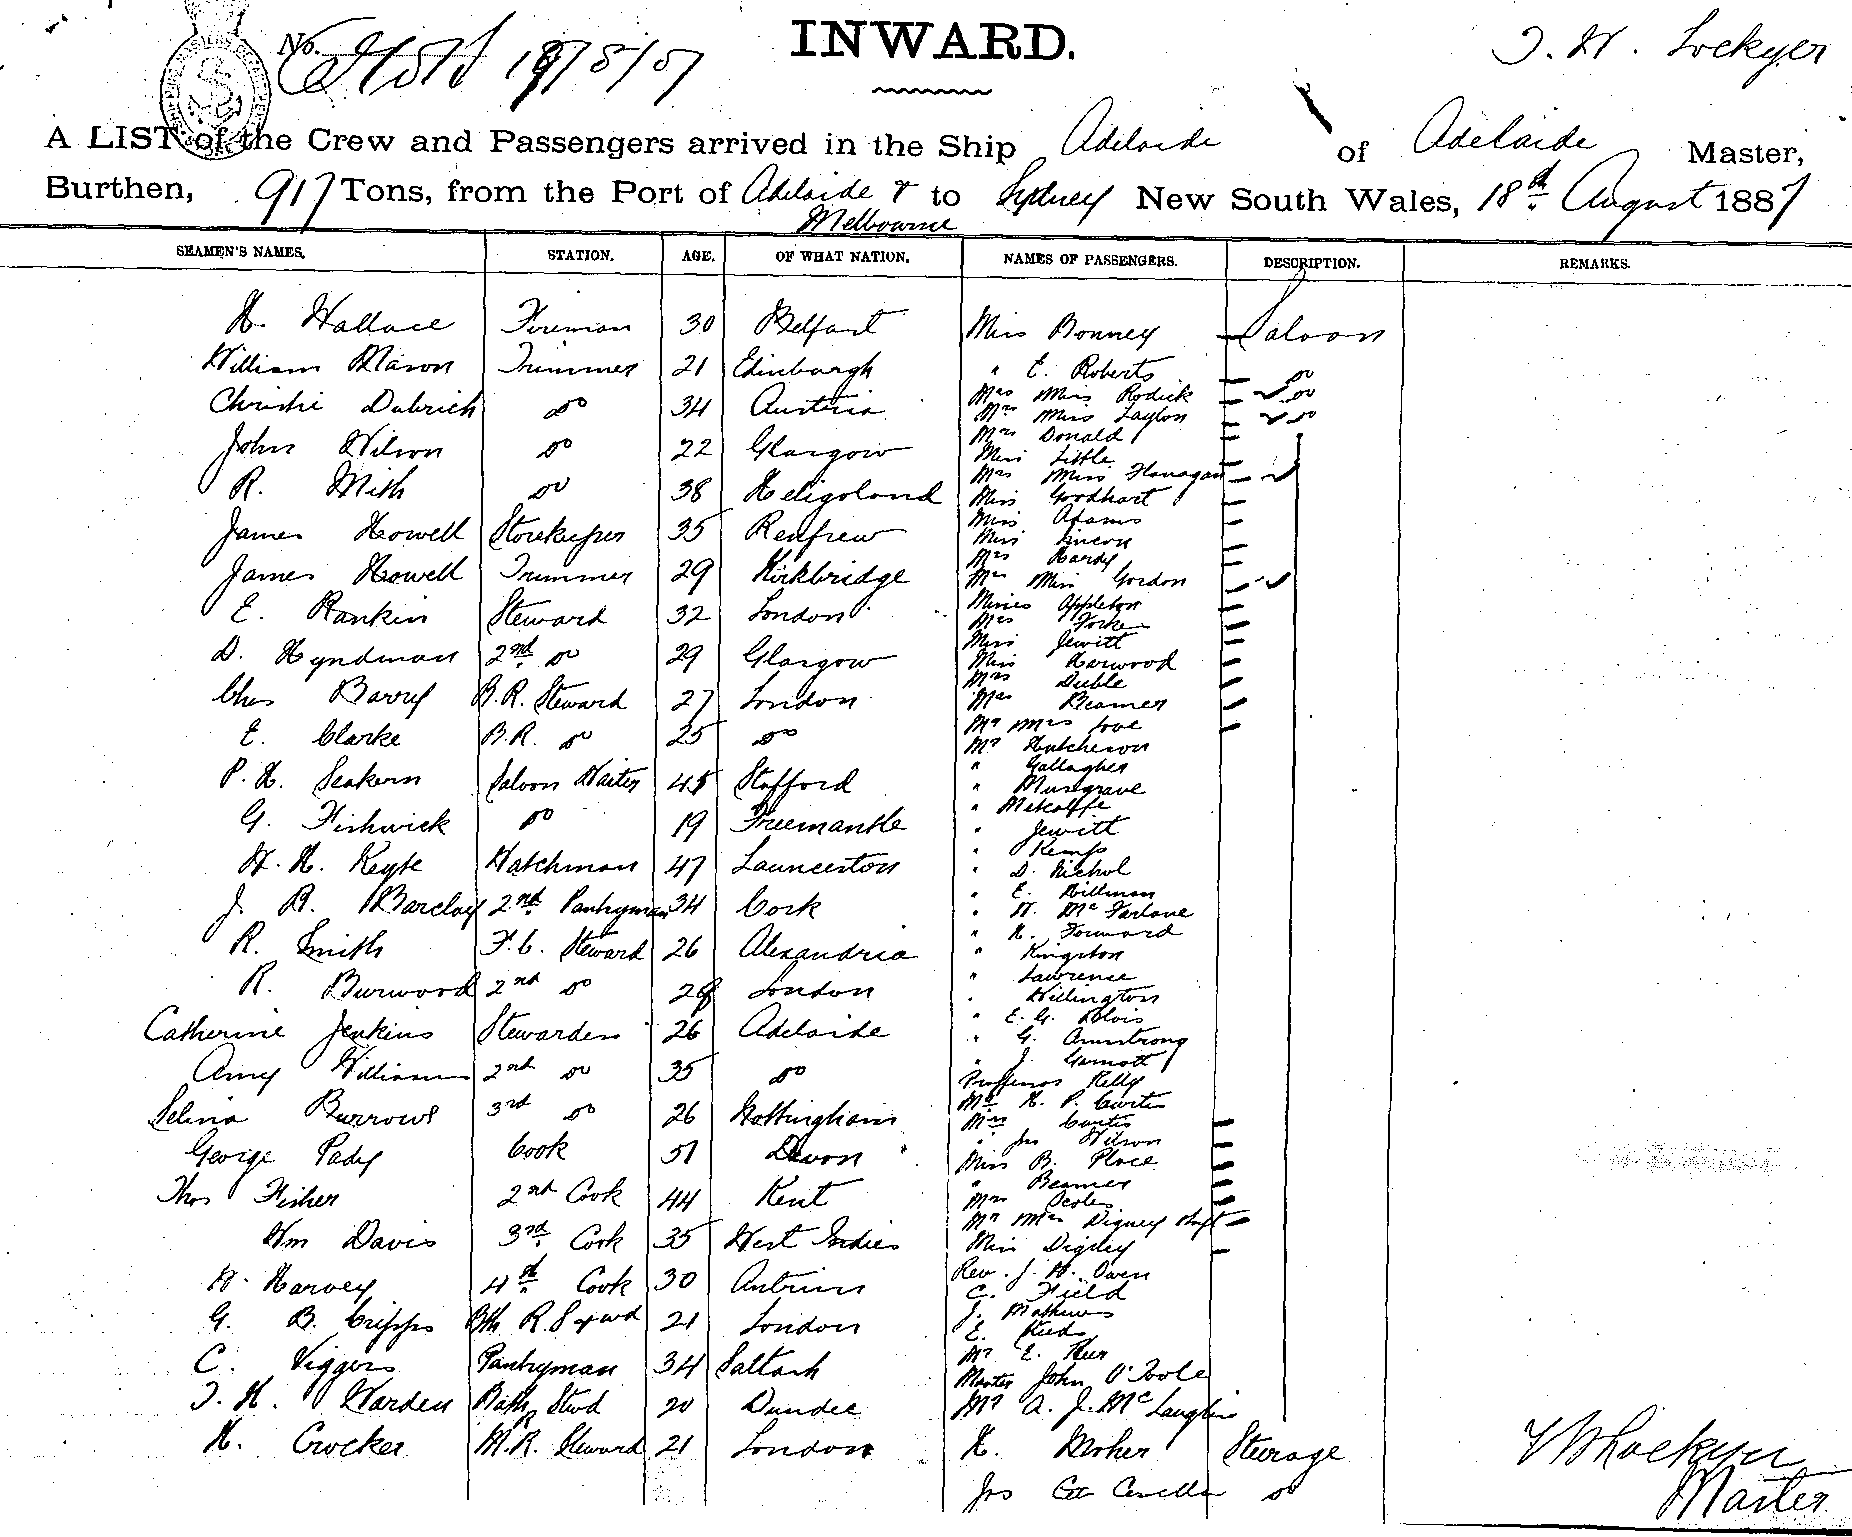 No. 19/8/87
INWARD.
J. W. Lockyer
A LIST of the Crew and Passengers arrived in the Ship Adelaide of Adelaide Master,
Burthen, 917 Tons, from the Port of Adelaide & to Sydney New South Wales, 18th August 1887
Melbourne
SEAMEN'S NAMES. STATION. AGE. OF WHAT NATION. NAMES OF PASSENGERS. DESCRIPTION. REMARKS.
H. Wallace Fireman 30 Belfast Miss Bonney Saloon
William Mason Trimmer 21 Edinburgh " E. Roberts do
Christie Dubrich do 34 Austria Mrs Miss Rodick do
Mrs Miss Layton do
John Wilson do 22 Glasgow Mrs Donald
Miss Little
R. Mith do 38 Heligoland Mrs Miss Flanagan
Miss Goodhart
James Howell Storekeeper 35 Renfrew Miss Adams
Miss Lincon
Mrs Hardy
James Howell Trimmer 29 Kirkbridge Mrs Miss Gordon
E. Rankin Steward 32 London Misses Appleton
Mrs Yorke
Miss Jewitt
D. Hyndman 2nd do 29 Glasgow Miss Harwood
Mrs Deeble
Chas Barry B.R. Steward 27 London Mrs Beamer
Mr Mrs Love
E. Clarke B.R. do 25 do Mr Hutcheson
" Gallagher
P. H. Seakern Saloon Waiter 45 Stafford " Musgrave
" Metcalffe
G. Fishwick do 19 Freemantle " Jewitt
" Kemp
W. H. Keyte Watchman 47 Launceston " D. Nichol
" E. Hillman
J. B. Barclay 2nd Pantryman 34 Cork " W. McFarlane
" H. Forward
R. Smith F.C. Steward 26 Alexandria " Kingston
" Lawrence
R. Burwood 2nd do London " Willington
" E. G. Blois
Catherine Jenkins Stewardess 26 Adelaide " G. Armstrong
" J. Garnott
Amy Williams 2nd do 35 do Proffessor Kelly
Mr H. P. Curtis
Selina Burrows 3rd do 26 Nottingham Mrs Curtis
" Jas Wilson
George Pady Cook 51 Devon Miss B. Place
" Beamer
Thos Fisher 2nd Cook 44 Kent Mrs Scoles
Mr Mrs Digney
Wm Davis 3rd Cook 35 West Indies Miss Digney
W. Harvey 4th Cook 30 Antrim Rev. J. H. Owen
C. Field
G. B. Cripps Bth R. 21 London J. Mathews
E.
C. Viggers Pantryman 34 Saltash Mr E.
Master John O'Toole
J. H. Warden Bath Stwd 20 Dundee Mr A. J. McLaughlin
H. Crocker M.R. Steward 21 London H. Moher Steerage
Jas do
Lockyer
Master